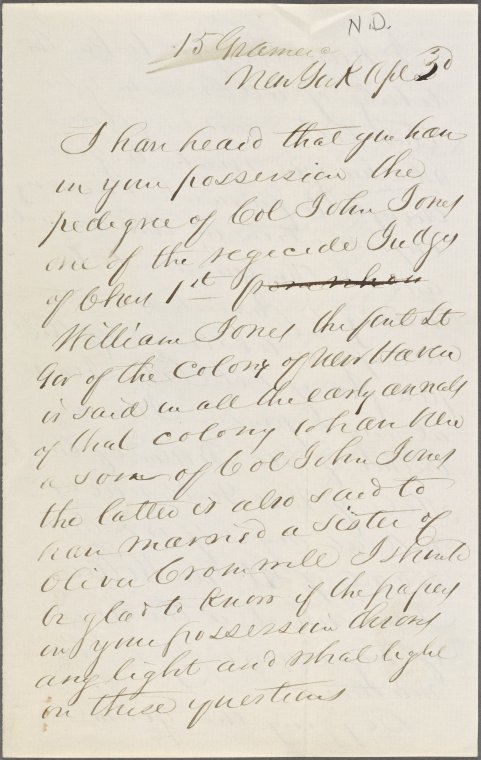 N.D.
15 Gramerc
New York Apl 3d
I have heard that you have
in your possession the
pedigree of Col John Jones
one of the regicide Judges
of Chas 1st
William Jones the first Lt
Gov of the Colony of New Haven
is said in all the early annals
of that colony to have been
a son of Col John Jones
the latter is also said to
have married a sister of
Oliver Cromwell I should
be glad to know if the papers
in your possession throws
any light and what light
on these questions